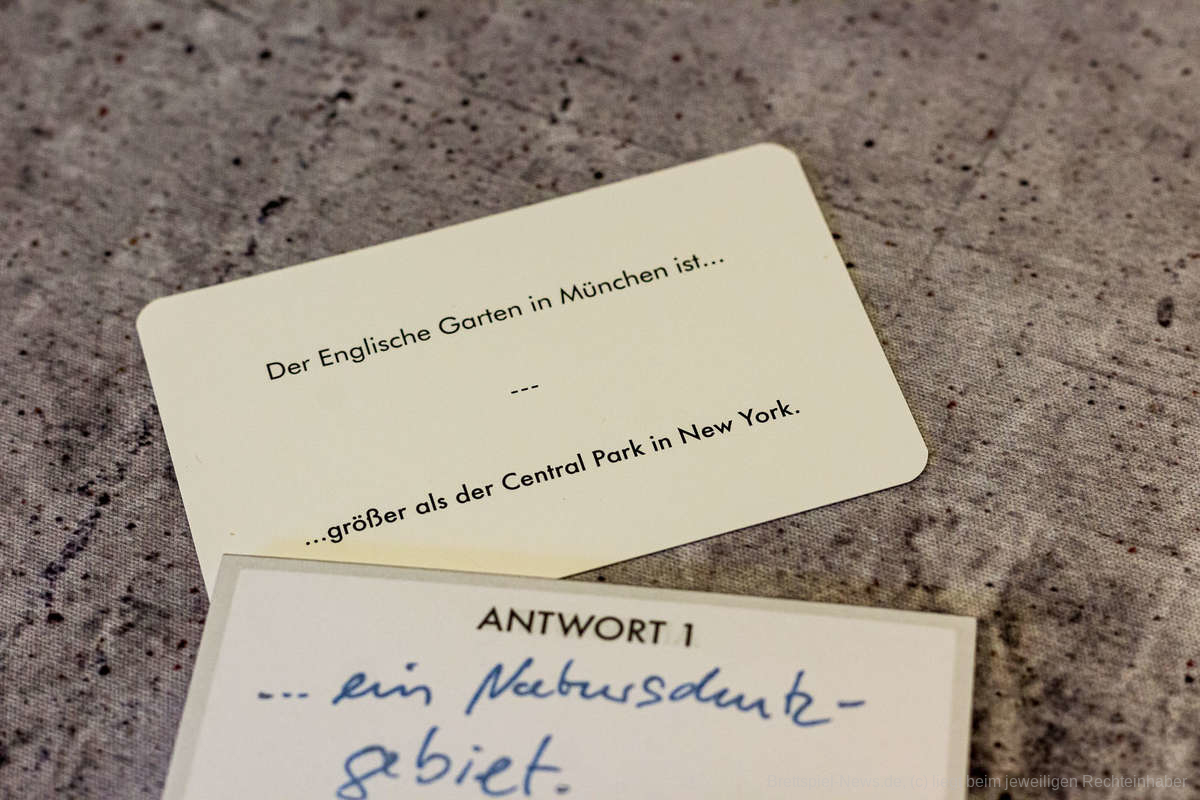 Der Englische Garten in München ist...
---
...größer als der Central Park in New York.
ANTWORT 1
... ein Naturschutz-
gebiet.
beim jeweiligen Rechteinhaber